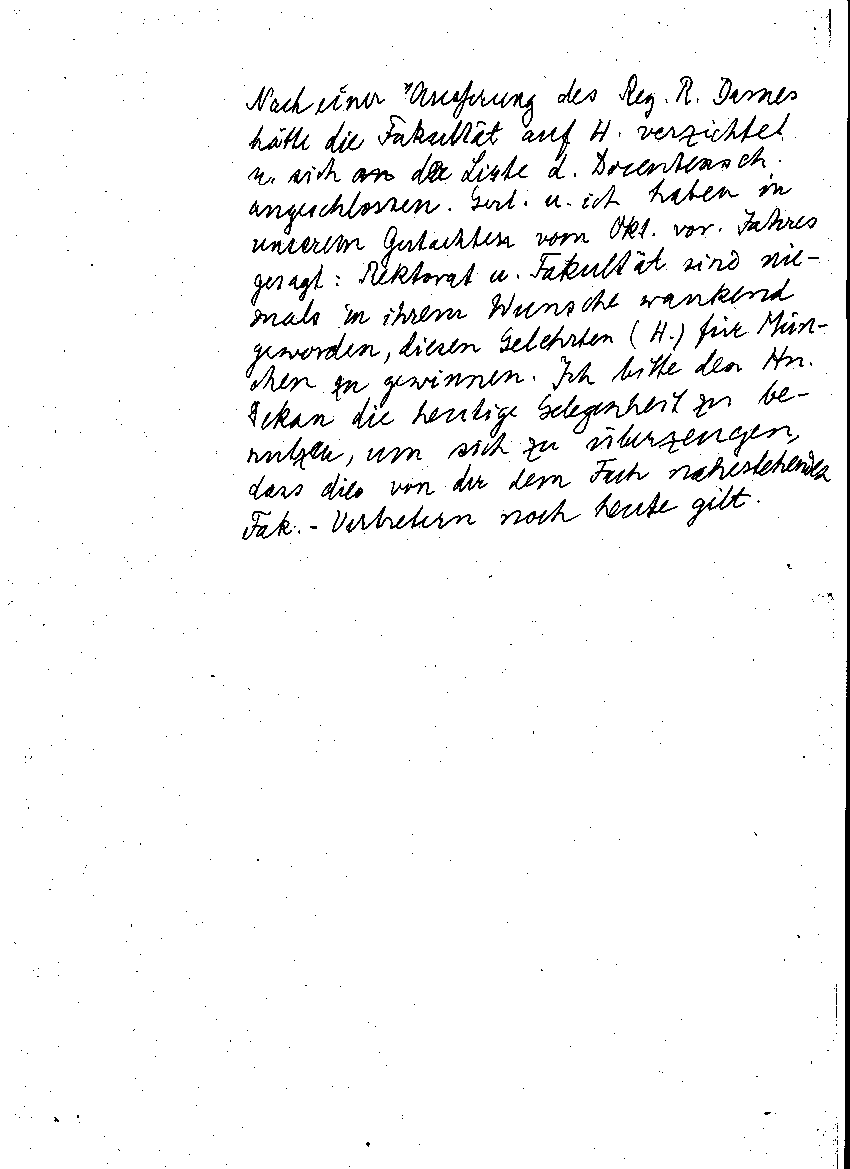 Nach einer Äusserung des Reg. R. Dames
hätte die Fakultät auf H. verzichtet
u. sich an die Liste d. Docentensch.
angeschlossen. Gerl. u. ich haben in
unserem Gutachten vom Okt. vor. Jahres
gesagt: Rektorat u. Fakultät sind nie-
mals in ihrem Wunsche wankend
geworden, diesen Gelehrten (H.) für Mün-
chen zu gewinnen. Ich bitte den Hn.
Dekan die heutige Gelegenheit zu be-
nutzen, um sich zu überzeugen,
dass dies von der dem Fach nahestehenden
Fak.-Vertretern noch heute gilt.